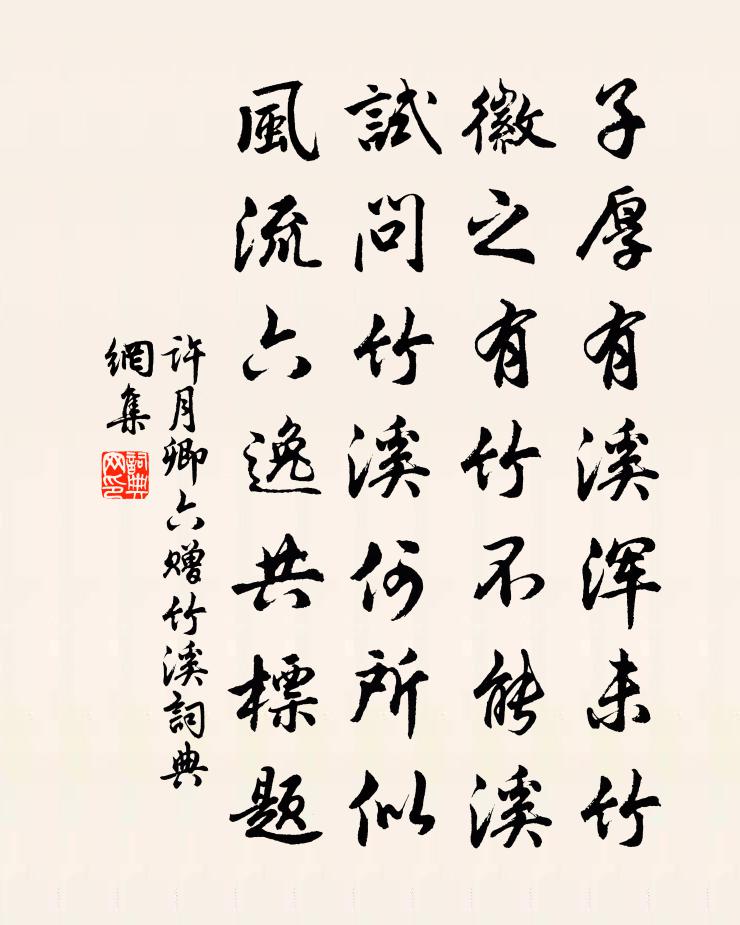 子厚有溪渾未竹
徽之有竹不能溪
試問竹溪何所似
風流六逸共標題
許月卿六贈竹溪詞典
網集
詞典
网印